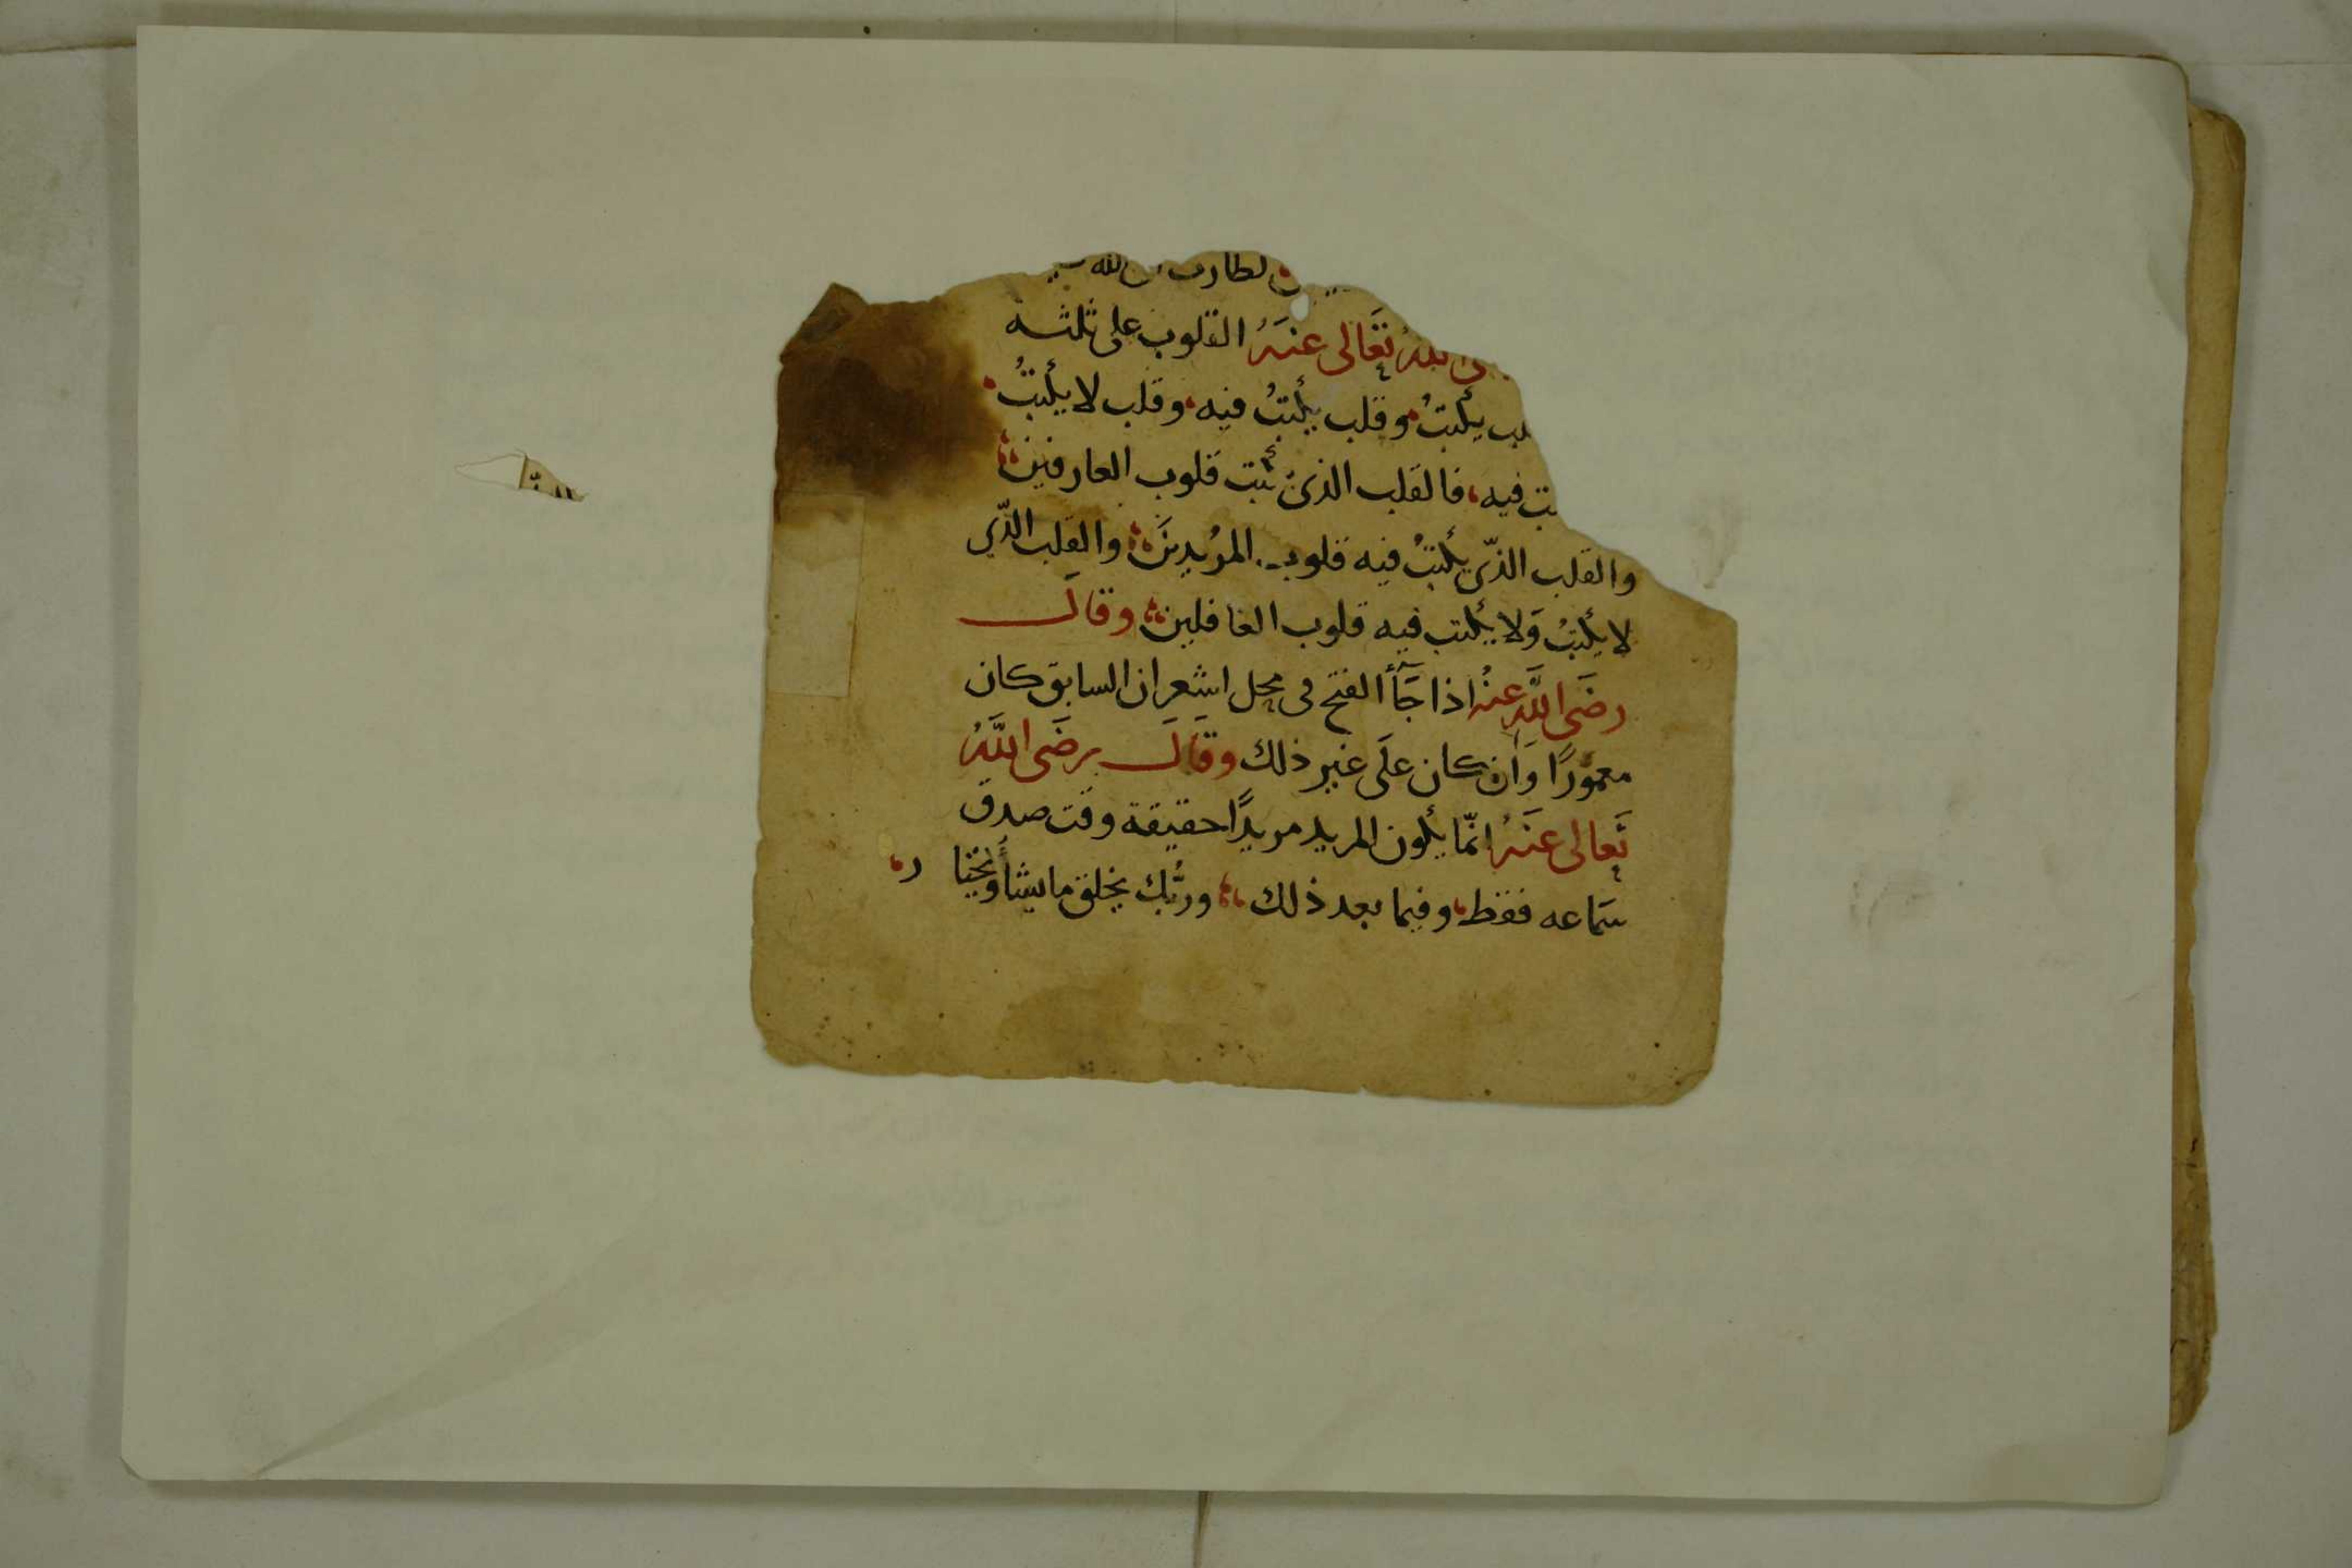 الله تَعَالى عنَهُ القلوب على ثلثه
يكتبُ وقلب يكتبُ فيه وقلب لا يكتبُ
فيه فالقلب الذى يكتب قلوب العارفين
والقلب الذّى يكتبُ فيه قلوب المرُيدينَ والقلب الذّي
لا يكتبُ وَلا يكتب فيه قلوب الغافلين وقالَ
رضَى اللَّه عنهُ اذا جَآأ الفتح فى محل اشعر ان السابق كان
معمورًا وَان كان علَى غير ذلك وقَالَ رضَى اللَّهُ
تَعالى عنَهُ انّما يكون المريد مريدًا حقيقة وقت صدق
سَماعه فقط وفيما بعد ذلك وربُّك يخلق ما يشأ ويختار